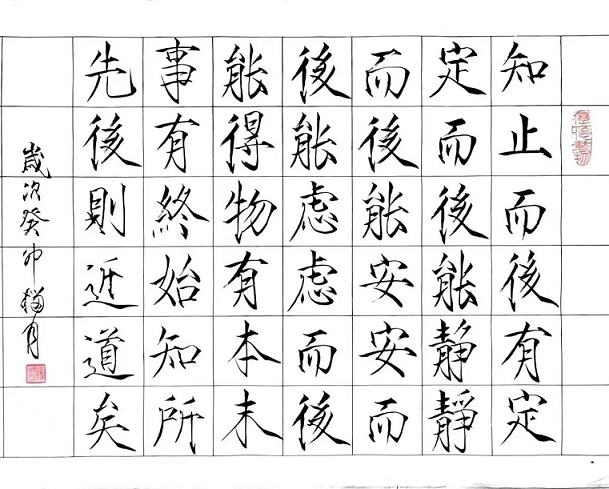 知止而後有定
定而後能静靜
而後能安安而
後能虑虑而後
能得物有本末
事有終始知所
先後則近道矣
歲次癸卯月